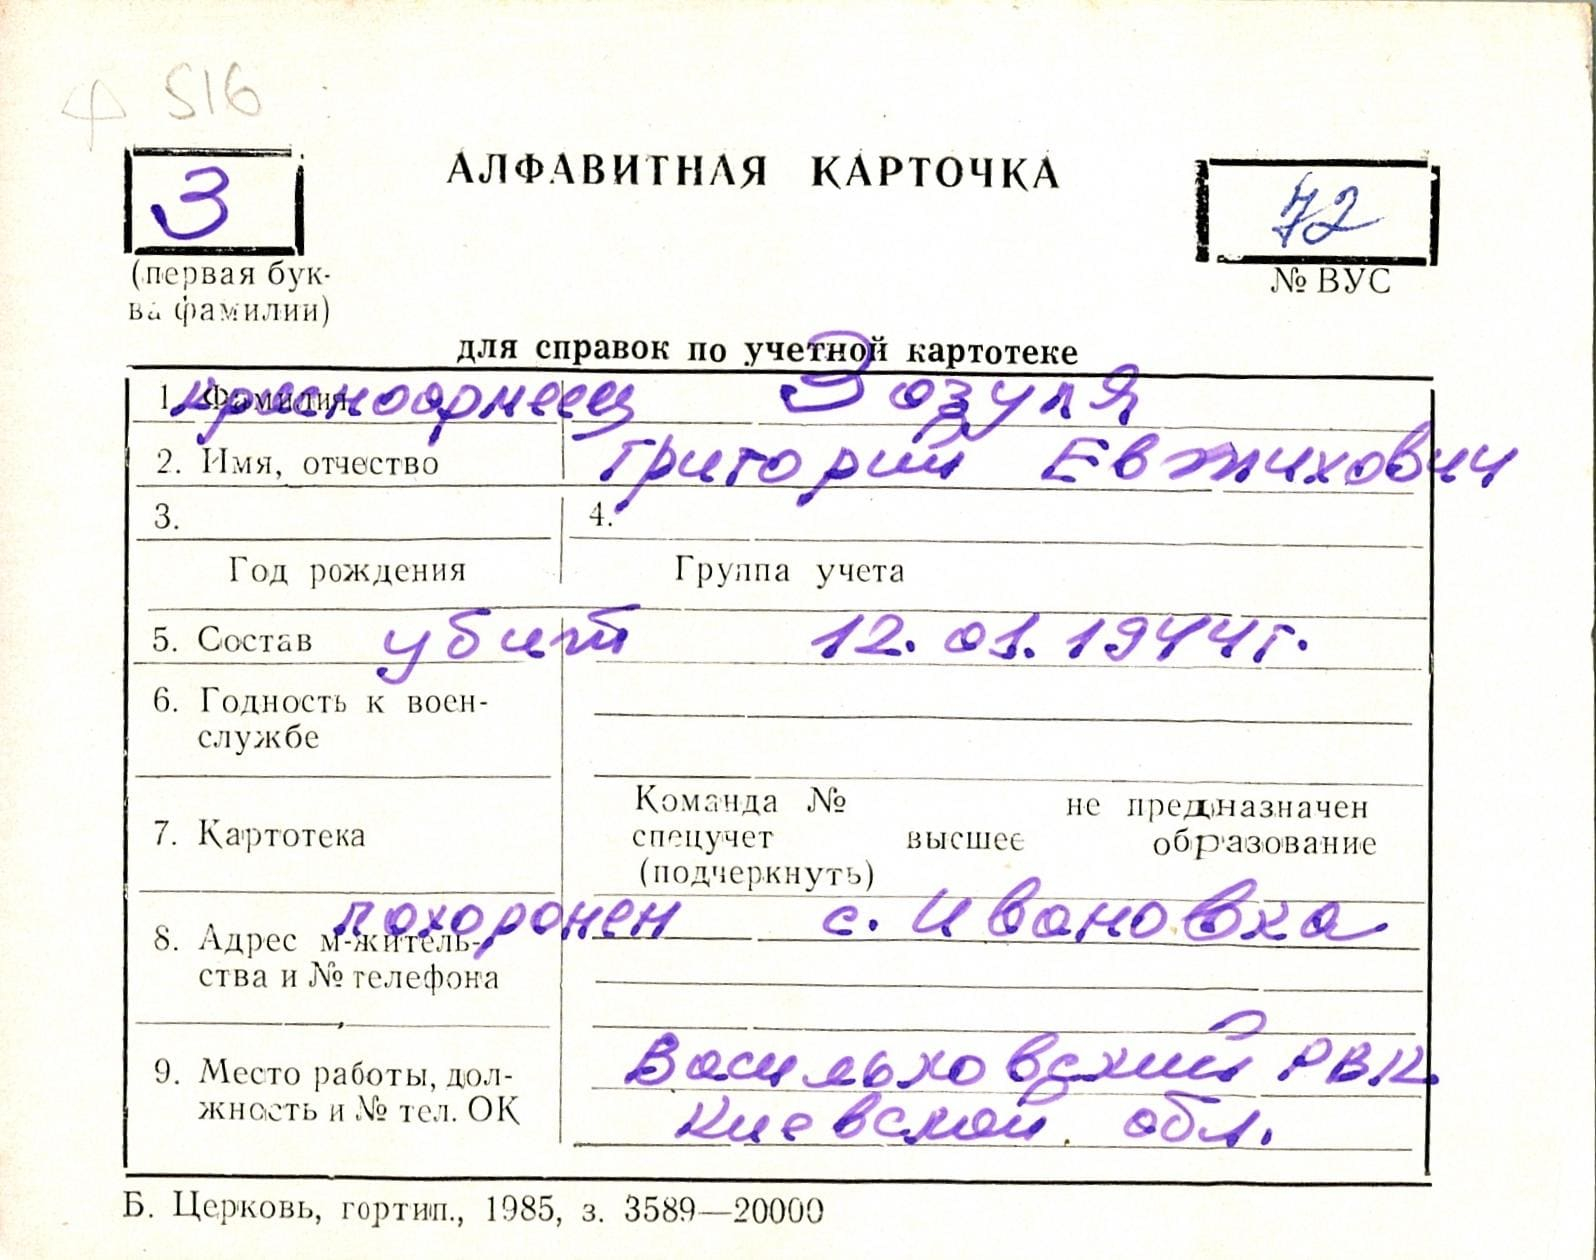 516
З
АЛФАВИТНАЯ КАРТОЧКА
72
(первая бук-
ва фамилии)
№ ВУС
для справок по учетной картотеке
1. Фамилия красноармеец Зозуля
2. Имя, отчество Григорий Евтихович
3. 4.
Год рождения Группа учета
5. Состав убит 12.01.1944г.
6. Годность к воен-
службе
Команда № не предназначен
7. Картотека спецучет высшее образование
(подчеркнуть)
похоронен с. Ивановка
8. Адрес м-житель-
ства и № телефона
Васильковский РВК
9. Место работы, дол-
жность и № тел. ОК Киевской обл.
Б. Церковь, гортип., 1985, з. 3589—20000